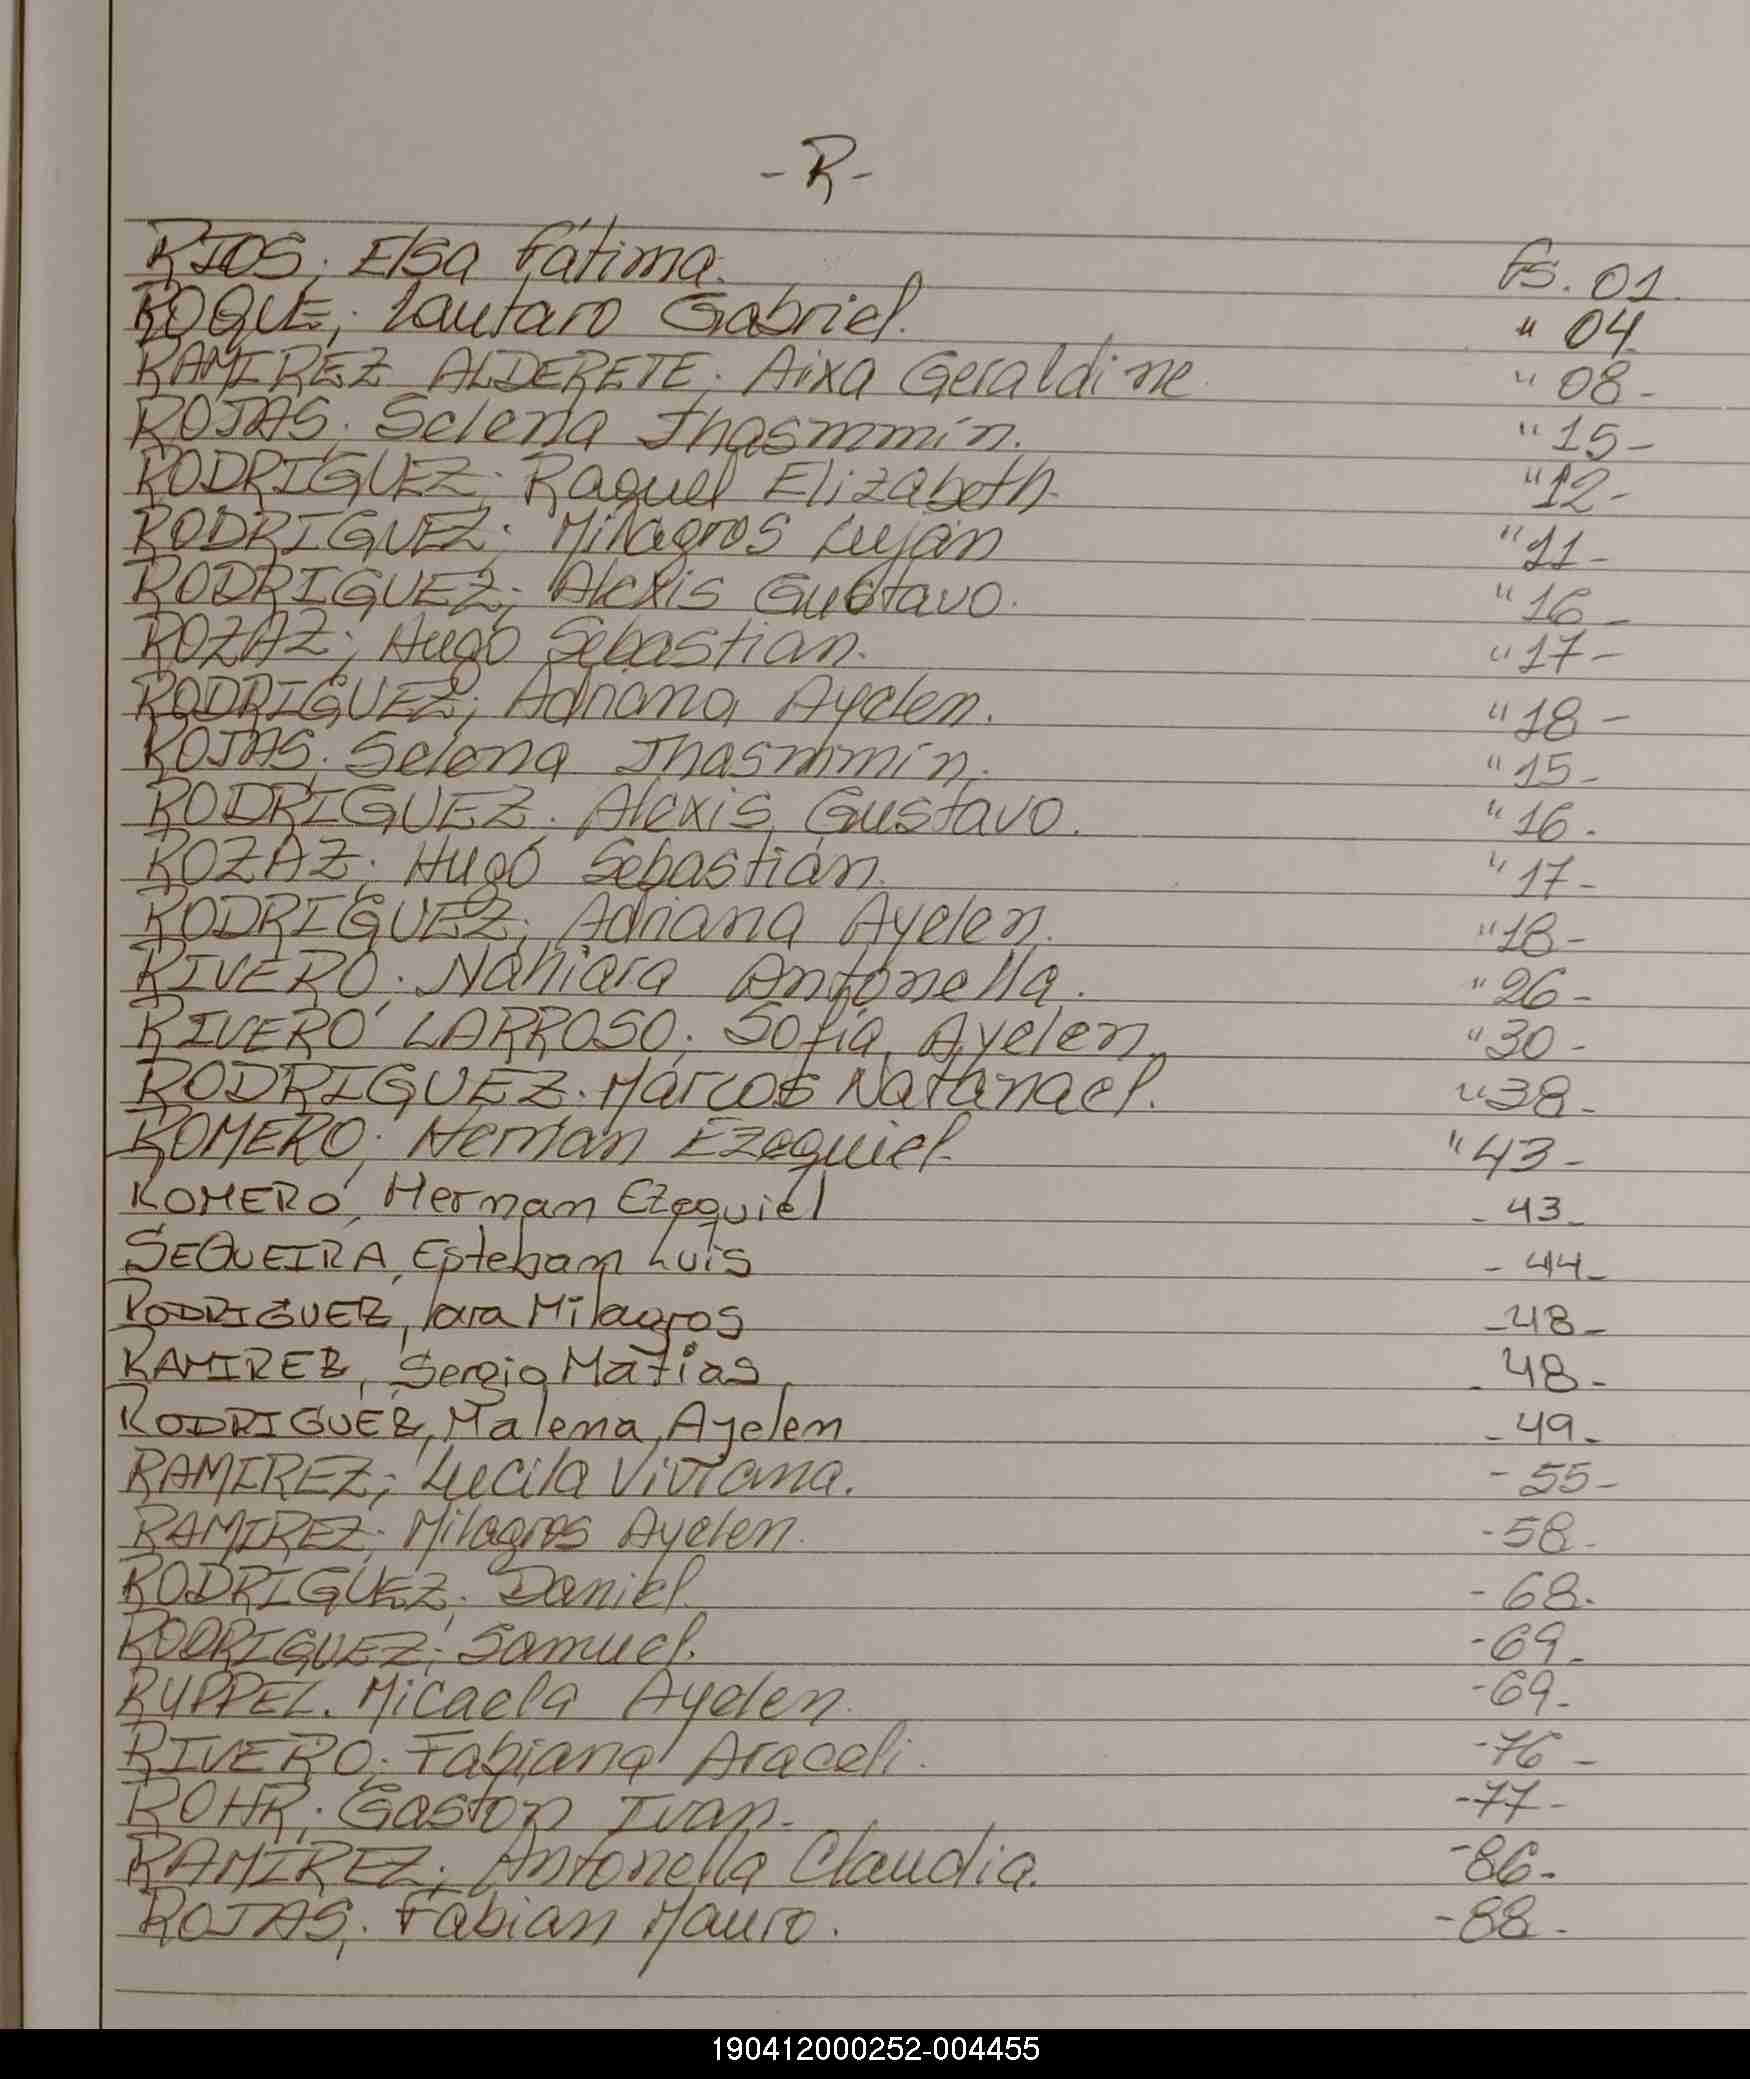 - R -
RIOS; Elsa Fátima. fs. 01.
ROQUE; Lautaro Gabriel. " 04
RAMIREZ ALDERETE; Aixa Geraldine. " 08 -
ROJAS; Selena Jhasmmín. " 15 -
RODRIGUEZ; Raquel Elizabeth. " 12 -
RODRIGUEZ; Milagros Luján " 11 -
RODRIGUEZ; Alexis Gustavo. " 16 -
ROZAZ; Hugo Sebastian. " 17 -
RODRIGUEZ; Adriana Ayelen. " 18 -
ROJAS; Selena Jhasmmín. " 15 -
RODRIGUEZ; Alexis Gustavo. " 16 .
ROZAZ; Hugo Sebastián. " 17 -
RODRIGUEZ; Adriana Ayelen. " 18 -
RIVERO; Nahiara Antonella. " 26 -
RIVERO LARROSO; Sofía Ayelen. " 30 -
RODRIGUEZ. Marcos Natanael. " 38 -
ROMERO; Hernan Ezequiel. " 43 -
ROMERO, Hernan Ezequiel - 43 -
SEQUEIRA, Esteban Luis - 44 -
RODRIGUEZ, Iara Milagros - 48 -
RAMIREZ, Sergio Matias - 48 -
RODRIGUEZ, Malena, Ayelen - 49 -
RAMIREZ; Lucila Viviana. - 55 -
RAMIREZ; Milagros Ayelen. - 58 -
RODRIGUEZ; Daniel. - 68 .
RODRIGUEZ; Samuel. - 69 -
RUPPEL. Micaela Ayelen. - 69 -
RIVERO; Fabiana Araceli. - 76 -
ROHR; Gaston Ivan. - 77 -
RAMIREZ; Antonella Claudia. - 86 -
ROJAS; Fabian Mauro. - 88 -
190412000252-004455